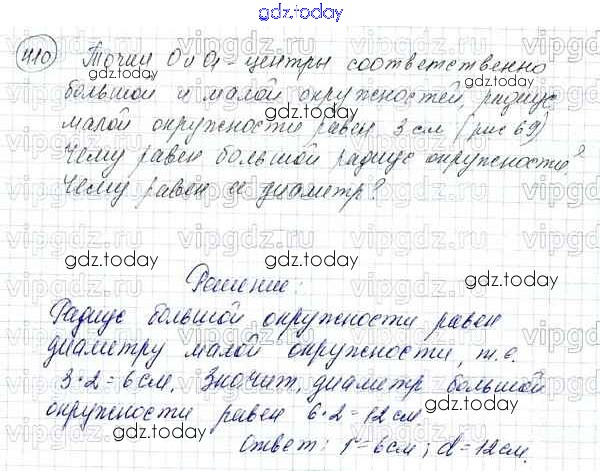 gdz.today
410
Точки O и O₁ - центры соответственно
большой и малой окружностей, радиус
малой окружности равен 3 см (рис 69)
Чему равен большой радиус окружности?
Чему равен её диаметр?
Решение:
Радиус большой окружности равен
диаметру малой окружности, т.е.
3·2=6см. Значит, диаметр большой
окружности равен 6·2=12см.
Ответ: r=6см; d=12см.